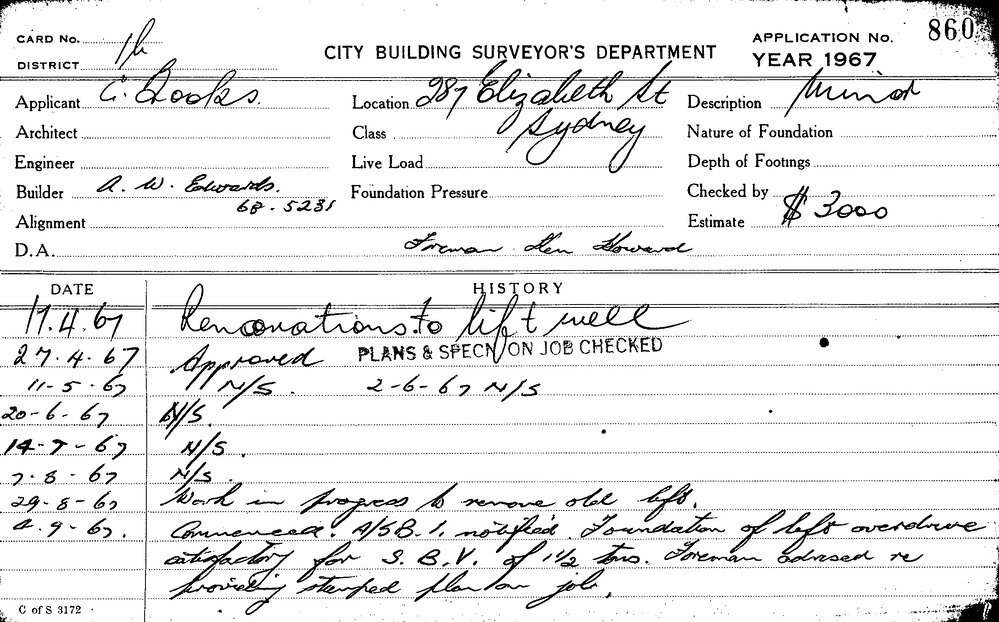 CARD No. 1h
DISTRICT
CITY BUILDING SURVEYOR'S DEPARTMENT
APPLICATION No. 860
YEAR 1967
Applicant C. Crooks.
Location 287 Elizabeth St
Sydney
Description Minor
Architect
Class
Nature of Foundation
Engineer
Live Load
Depth of Footings
Builder A. W. Edwards.
68-5231
Foundation Pressure
Checked by
Alignment
Estimate $ 3000
D.A.
Foreman Ken Howard
DATE HISTORY
17.4.67 Renonations to lift well
27.4.67 Approved PLANS & SPECN ON JOB CHECKED
11-5-67 N/S. 2-6-67 N/S
20-6-67 N/S.
14-7-67 N/S.
7.8.67 N/S.
29-8-67 Work in progress to remove old lift.
4.9.67. Commenced. A/SB.1. notified. Foundation of lift overdrive
satisfactory for S.B.V. of 1 1/2 tons. Foreman advised re
providing stamped plan on job.
C of S 3172